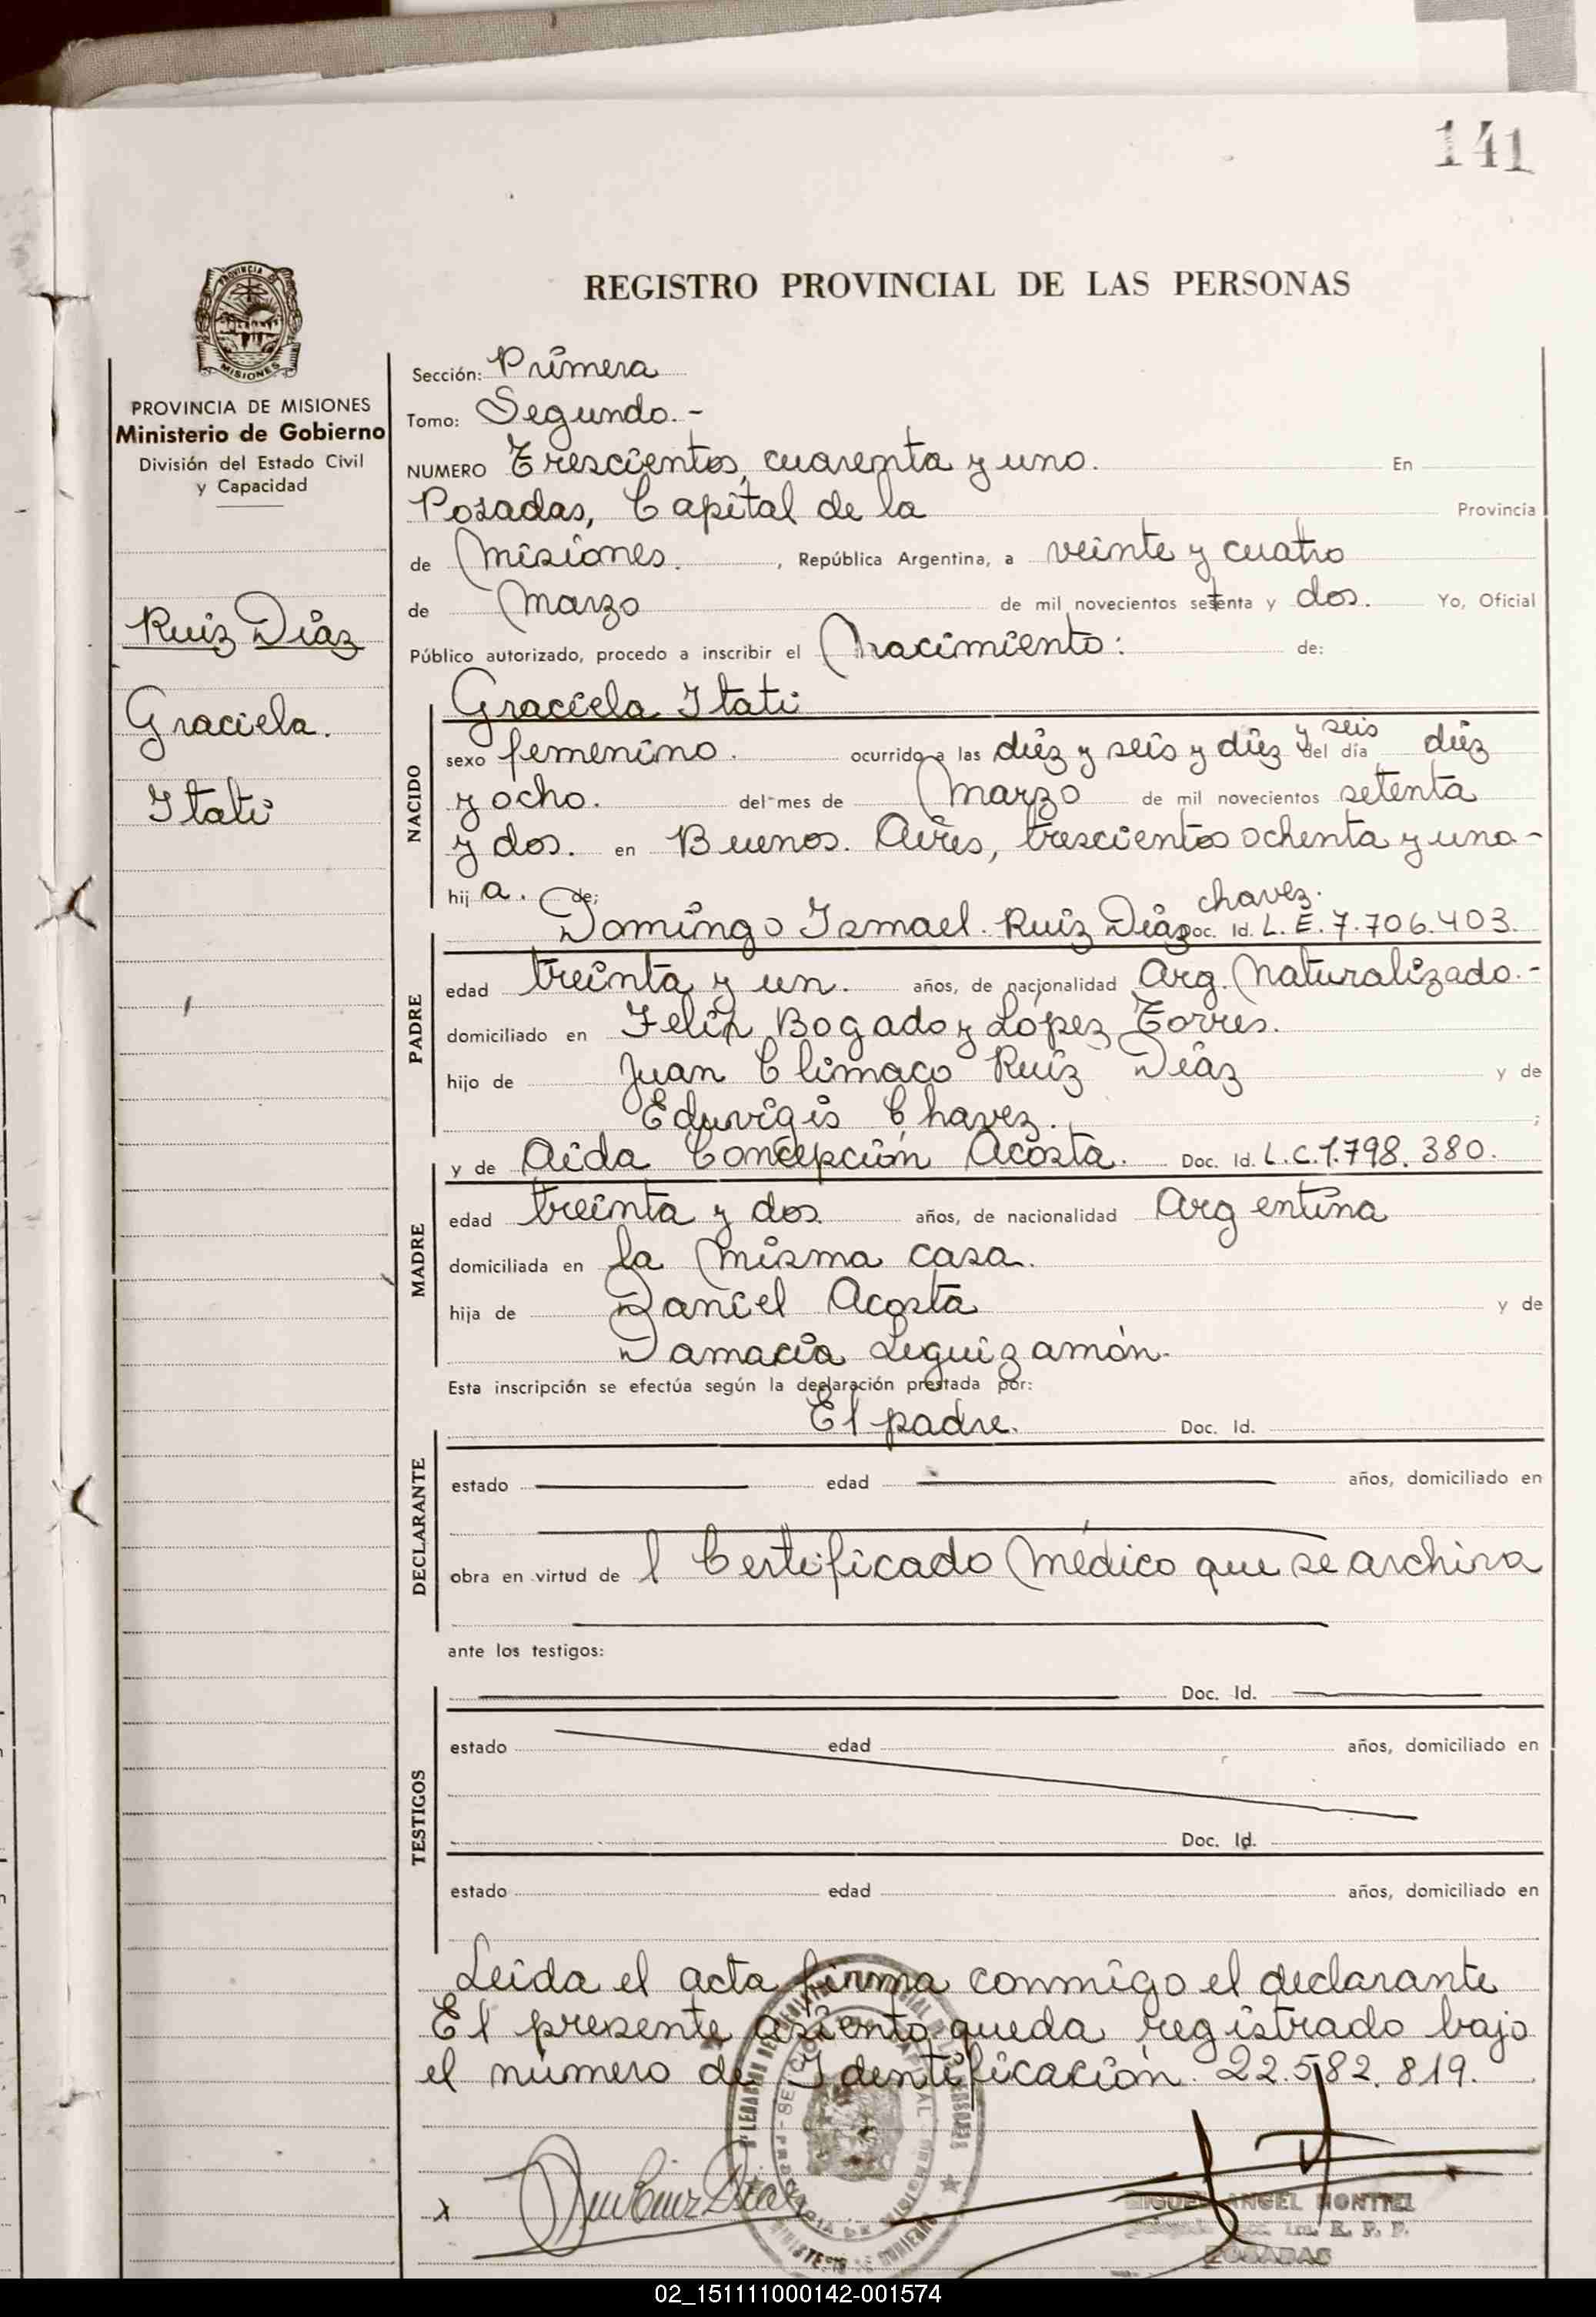 141
REGISTRO PROVINCIAL DE LAS PERSONAS
PROVINCIA
MISIONES
PROVINCIA DE MISIONES
Ministerio de Gobierno
División del Estado Civil
y Capacidad
Ruiz Díaz
Graciela.
Itatí
Sección: Primera
Tomo: Segundo.-
NUMERO Trescientos, cuarenta y uno. En
Posadas, Capital de la Provincia
de Misiones. , República Argentina, a veinte y cuatro
de Marzo de mil novecientos setenta y dos. Yo, Oficial
Público autorizado, procedo a inscribir el Nacimiento: de:
NACIDO
Graciela Itatí
y seis
sexo femenino. ocurrido a las diéz y seis y diéz del día diéz
y ocho. del mes de Marzo de mil novecientos setenta
y dos. en Buenos. Aires, trescientos ochenta y uno-
hija. de; chavez.
PADRE
Domingo Ismael. Ruiz Díaz Doc. Id. L. E. 7.706.403.
edad treinta y un. años, de nacionalidad Arg. Naturalizado.-
domiciliado en Felix Bogado y López Torres.
hijo de Juan Climaco Ruiz Díaz y de
Eduvigis Chavez. ;
MADRE
y de Aida Concepción Acosta. Doc. Id. L.C.1.798.380.
edad treinta y dos años, de nacionalidad Argentina
domiciliada en la misma casa.
hija de Daniel Acosta y de
Damacia Leguizamón.
Esta inscripción se efectúa según la declaración prestada por:
DECLARANTE
El padre. Doc. Id.
estado edad años, domiciliado en
obra en virtud de l Certificado Médico que se archiva
ante los testigos:
TESTIGOS
Doc. Id.
estado edad años, domiciliado en
Doc. Id.
estado edad años, domiciliado en
Leida el acta firma conmigo el declarante
El presente asiento queda registrado bajo
el número de Identificación. 22.582.819.
Ruiz Díaz
MIGUEL ANGEL MONTIEL
R. P. P.
POSADAS
02_151111000142-001574